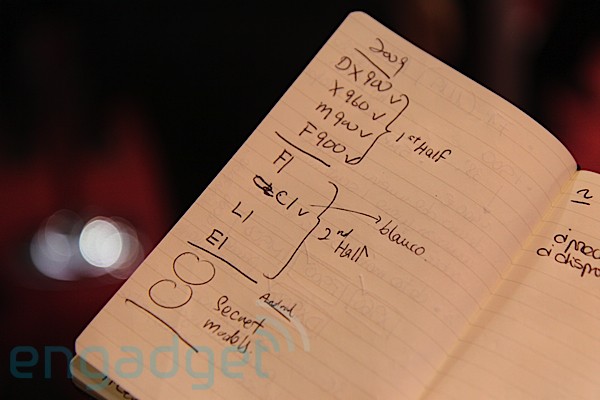 2009
DX900 v
X960 v
M900 v
F900 v
1st Half
F1
C1 v
L1
E1
blanco
2nd Half
Android
Secret
models.
engadget